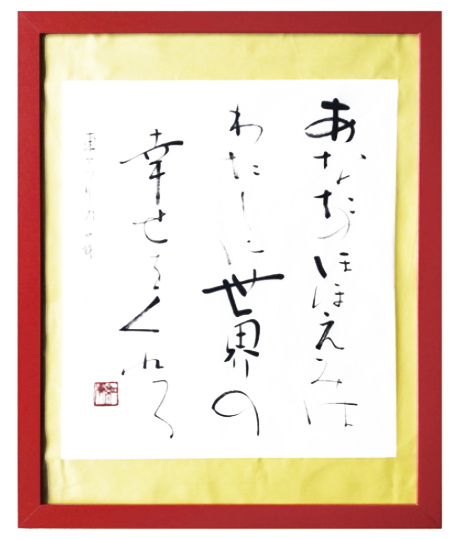 あなたのほほえみは
わたしに世界の
幸せをくれる